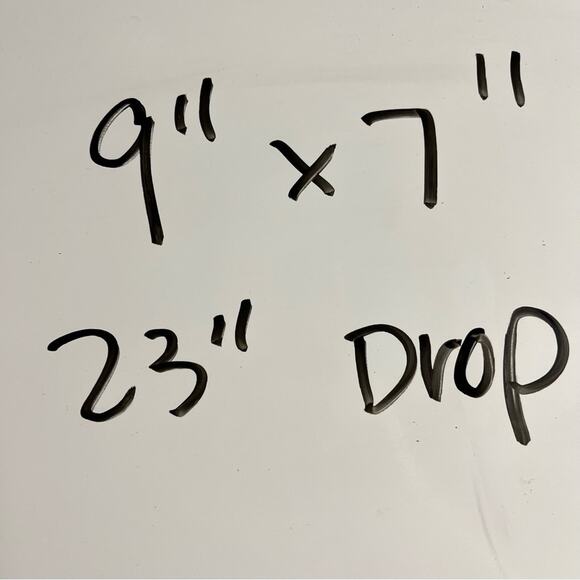 9" x 7"
23" Drop